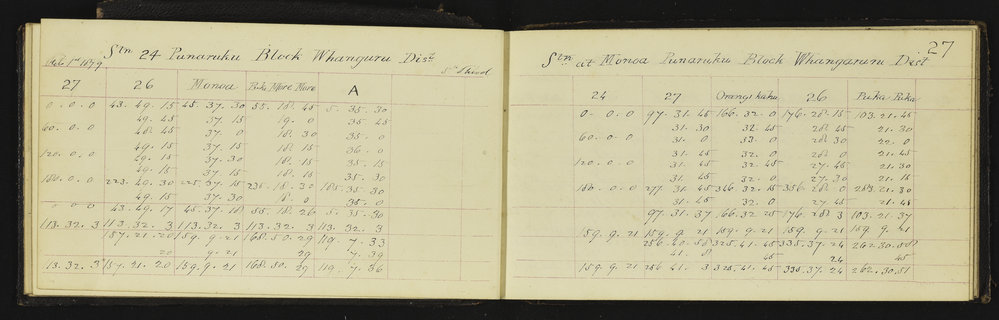 Stn 24 Punaruku Block Whanguru Dist.
27 26 Monoa A
0. 0. 0 43. 49. 15 45. 37. 30 55. 18. 45 5. 35. 30
49. 45 37. 15 19. 0 35. 45
60. 0. 0 48. 45 37. 0 18. 30 35. 0
49. 15 37. 15 18. 15 36. 0
120. 0. 0 49. 15 37. 30 18. 15 35. 15
49. 15 37. 15 18. 15 35. 30
180. 0. 0 223. 49. 30 225. 37. 15 235. 18. 30 185. 35. 30
49. 15 37. 30 18. 0 35. 0
0 0 0 43. 49. 17 45. 37. 18 55. 18. 26 5. 35. 30
113. 32. 3 113. 32. 3 113. 32. 3 113. 32. 3 113. 32. 3
157. 21. 20 159. 9. 21 168. 50. 29 119. 7. 33
20 9. 21 29 7. 39
13. 32. 3 157. 21. 20 159. 9. 21 168. 50. 29 119. 7. 36
27
Stn at Monoa Punaruku Block Whangaruru Dist
24 27 26 Puka-Puka
0. 0. 0 97. 31. 45 166. 32. 0 176. 28. 15 103. 21. 45
31. 30 32. 45 28. 45 21. 30
60. 0. 0 31. 0 33. 0 28. 30 22. 0
31. 45 32. 0 28. 0 21. 45
120. 0. 0 31. 45 32. 45 27. 45 21. 30
31. 45 32. 0 27. 30 21. 15
180. 0. 0 277. 31. 45 346. 32. 15 356. 28. 0 283. 21. 30
31. 45 32. 0 27. 45 21. 45
97. 31. 37 166. 32 25 176. 28. 3 103. 21. 37
159. 9. 21 159. 9. 21 159. 9. 21 159. 9. 21 159 9. 21
256. 40. 58 325. 41. 45 335. 37. 24 262. 30. 58
41. 8 45 24 45
159. 9. 21 256. 41. 3 325. 41. 45 335. 37. 24 262. 30. 51